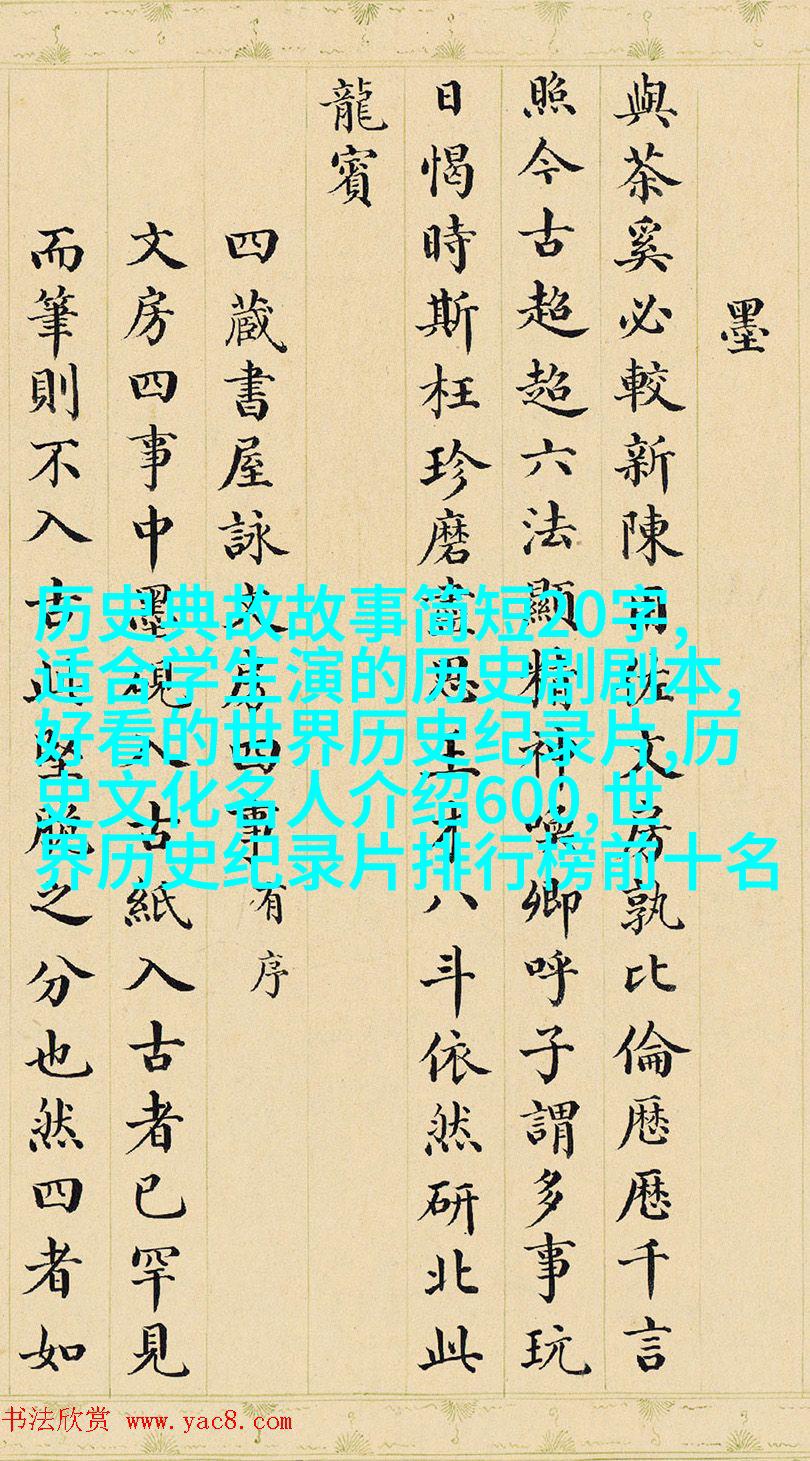 墨
與茶奚必較新陳用佐文房孰比倫厯厯千言
照今古超超六法顯精神喚卿呼子謂多事玩
日愒時斯枉珍磨盡思王才八斗依然研北此
龍賓
四蔵書屋詠文房四事有序
文房四事中墨硯入古紙入古者已罕見
而筆則不入古此堅脆之分也然四者如
历史典故故事简短20字,
适合学生演的历史剧剧本,
好看的世界历史纪录片,历
史文化名人介绍600,世
界历史纪录片排行榜前十名
书法欣赏 www.yac8.com